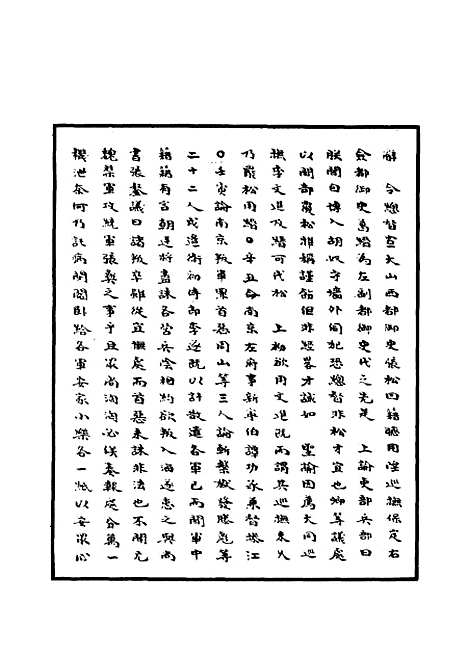 辭　令總督宣大山西都御史張松回籍聽用陞巡撫保定右
僉都御史葛縉為左副都御史代之先是　上諭吏部兵部曰
朕聞白博入胡奴守墻外伺犯恐總督非松才宜也卿等議處
以聞部覆松非稱謹飭但非經畧才誠如　聖諭因薦大同巡
撫李文進及縉可代松　上初欲用文進既而謂其巡撫未久
乃罷松用縉○辛丑命南京左府事新寧伯譚功承兼督操江
○壬寅論南京叛軍罪首惡周山等三人論斬繫獄發滕彪等
二十二人戍邊衛初侍郎李遂既以計散遣各軍已而聞軍中
籍籍有言朝廷將盡誅各營兵陰相約欲叛入海遂患之與尚
書張鏊議曰諸叛卒雖從宜撫處而首惡未誅非法也不聞元
魏禁軍攻統軍張彝之事乎且眾尚洶洶必俟奏報處分萬一
機泄奈何乃託病閉閣臥給各軍安家小票各一紙以安眾心